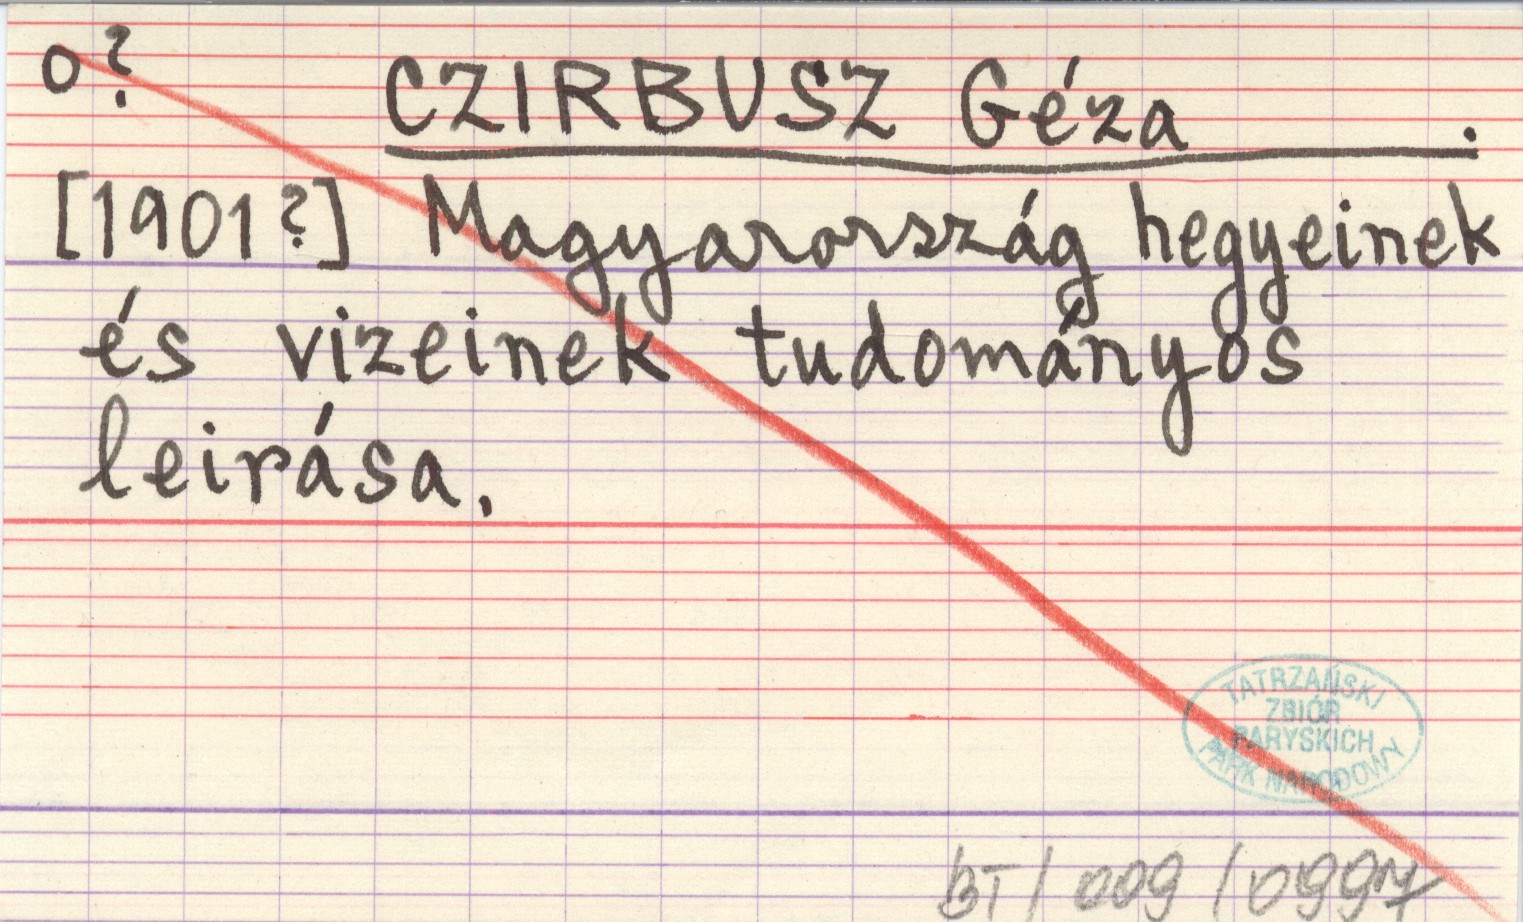 o?
CZIRBUSZ Géza .
[1901?] Magyarország hegyeinek
és vizeinek tudományos
leirása.
TATRZAŃSKI
ZBIÓR
PARYSKICH
PARK NARODOWY
BT/009/0997